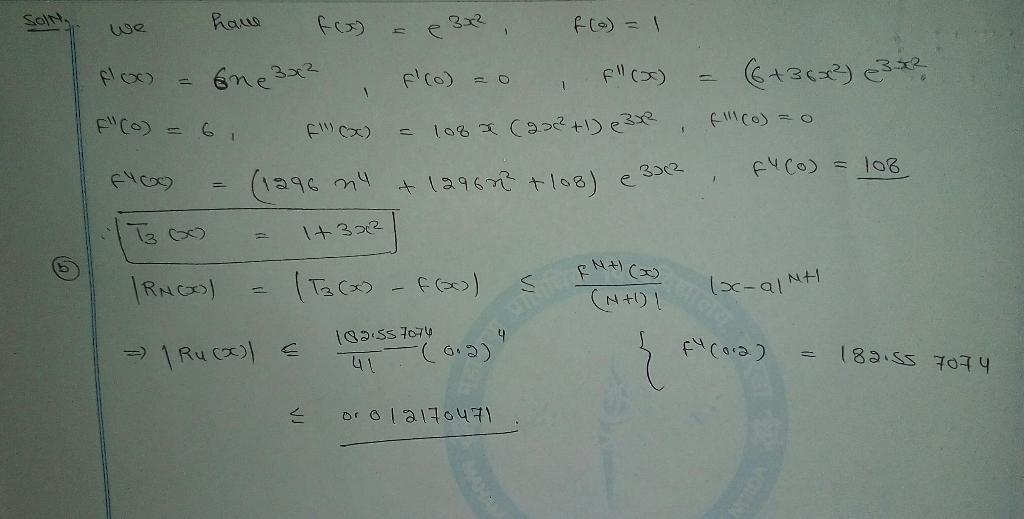 Soln. we have f(x) = e^{3x²}, f(0) = 1
f'(x) = 6xe^{3x²}, f'(0) = 0, f''(x) = (6+36x²) e^{3x²}.
f''(0) = 6, f'''(x) = 108 x (2x²+1) e^{3x²}, f'''(0) = 0
f⁴(x) = (1296 x⁴ + 1296x² + 108) e^{3x²}, f⁴(0) = 108
∴ T₃(x) = 1+3x²
(b) |R_N(x)| = |T₃(x) - f(x)| ≤ f^{N+1}(x)/(N+1)! |x-a|^{N+1}
⇒ |R₄(x)| ≤ 182.557074/4! (0.2)⁴ { f⁴(0.2) = 182.557074
≤ 0.012170471.